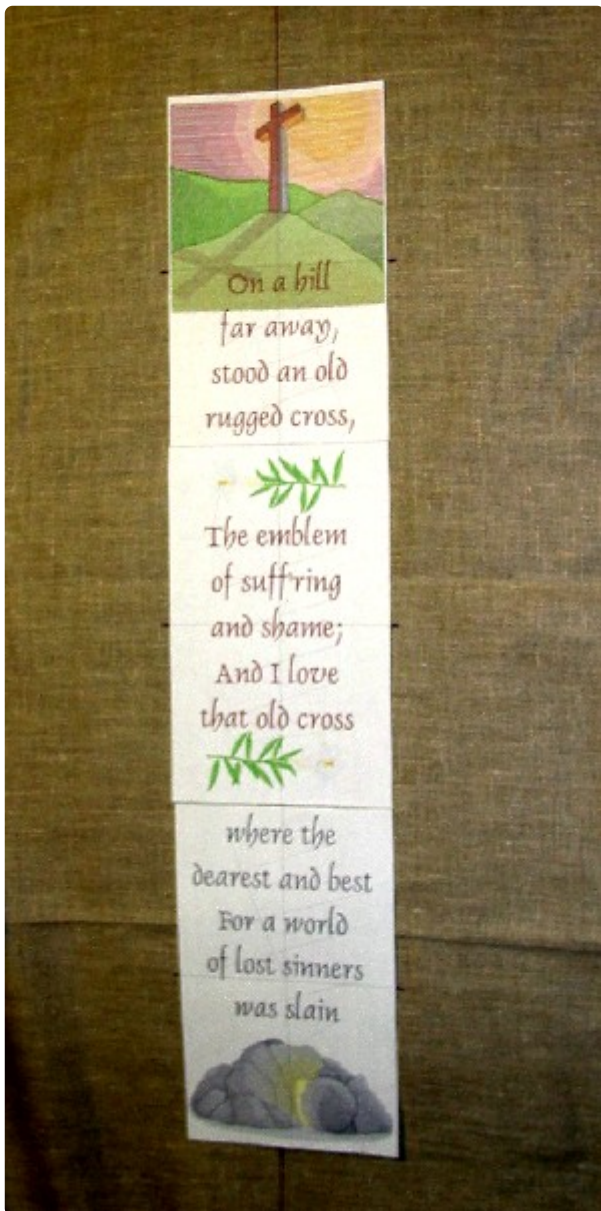 On a hill
far away,
stood an old
rugged cross,
The emblem
of suff'ring
and shame;
And I love
that old cross
where the
dearest and best
For a world
of lost sinners
was slain